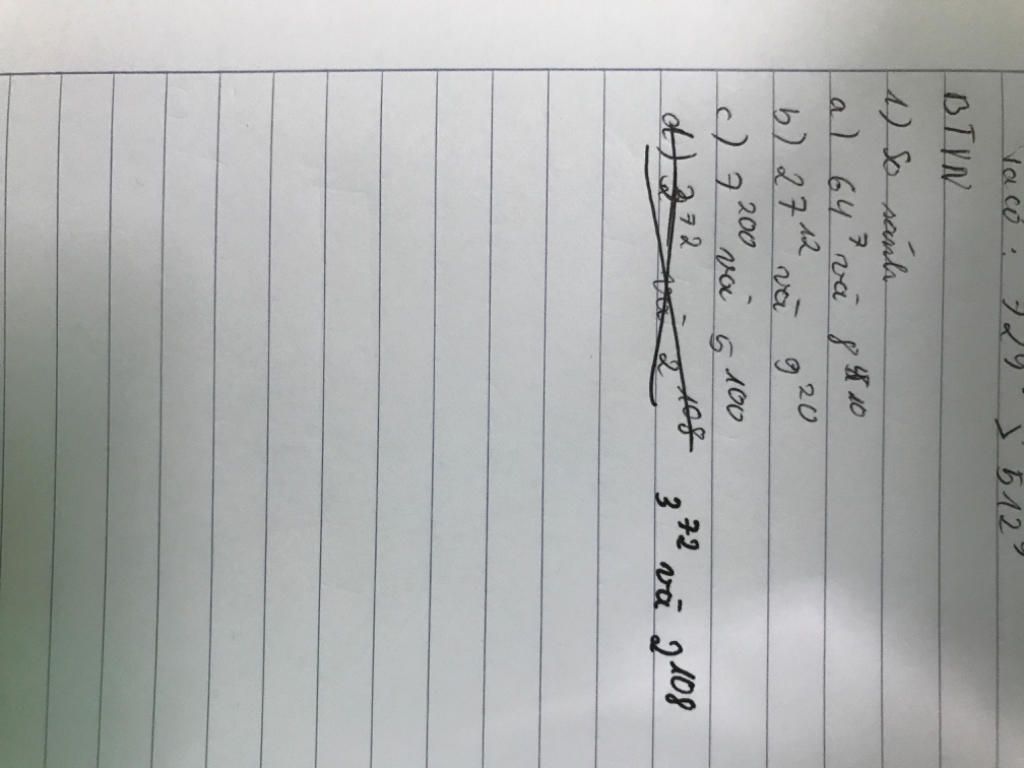 Ta có: 729 > 512⁹
BTVN
1) So sánh
a) 64⁷ và 8¹⁰
b) 27¹² và 9²⁰
c) 7²⁰⁰ và 5¹⁰⁰
d) 3⁷² và 2¹⁰⁸ 3⁷² và 2¹⁰⁸